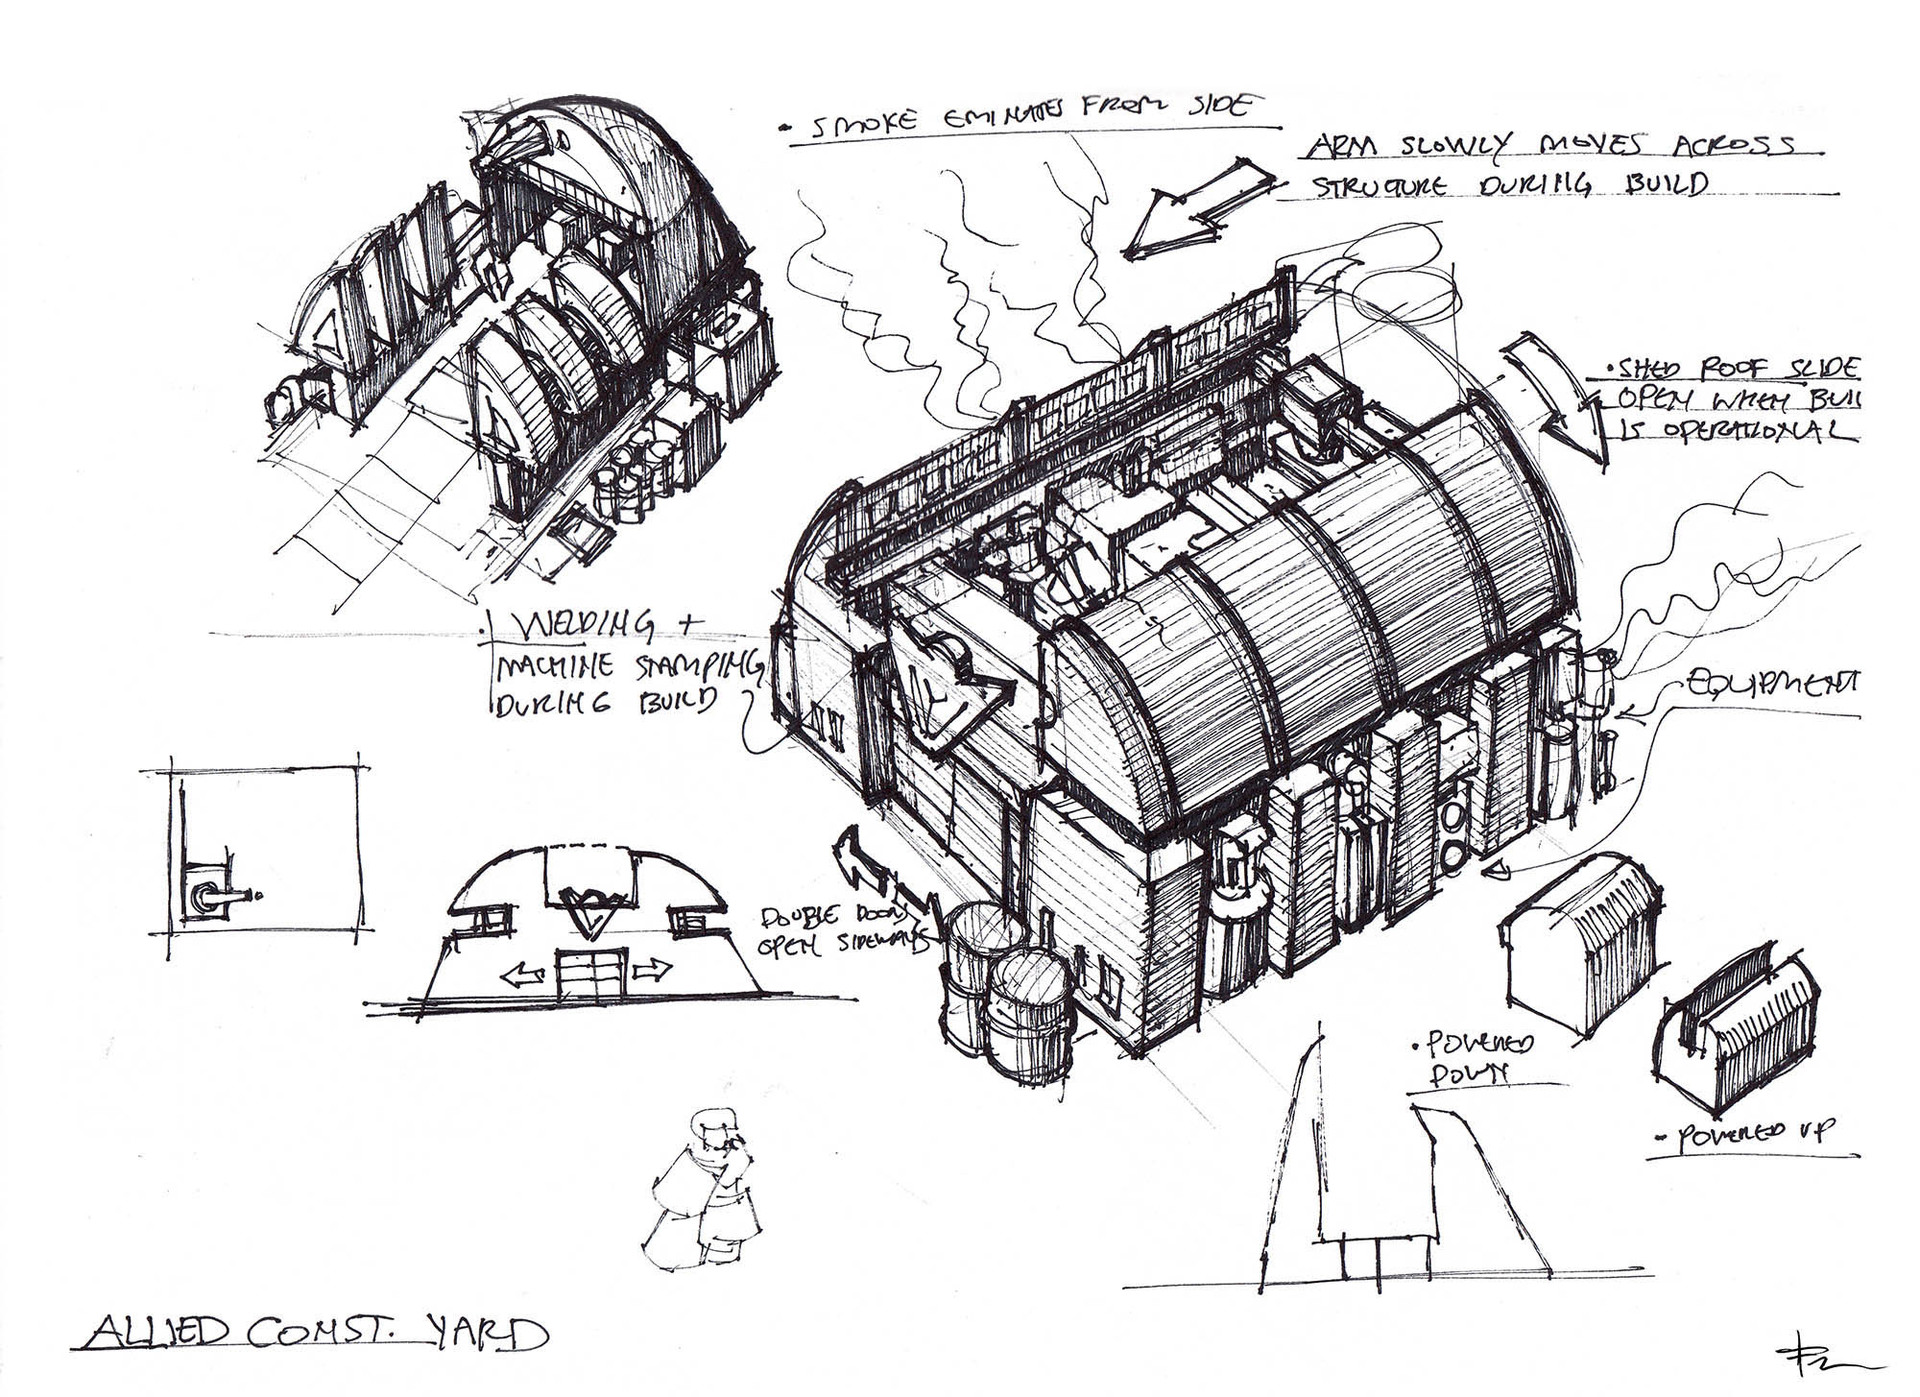 • SMOKE EMINATES FROM SIDE
ARM SLOWLY MOVES ACROSS
STRUCTURE DURING BUILD
• SHED ROOF SLIDE
OPEN WHEN BUI
IS OPERATIONAL
• WELDING +
MACHINE STAMPING
DURING BUILD
EQUIPMENT
DOUBLE DOORS
OPEN SIDEWAYS
• POWERED
DOWN
- POWERED UP
ALLIED CONST. YARD